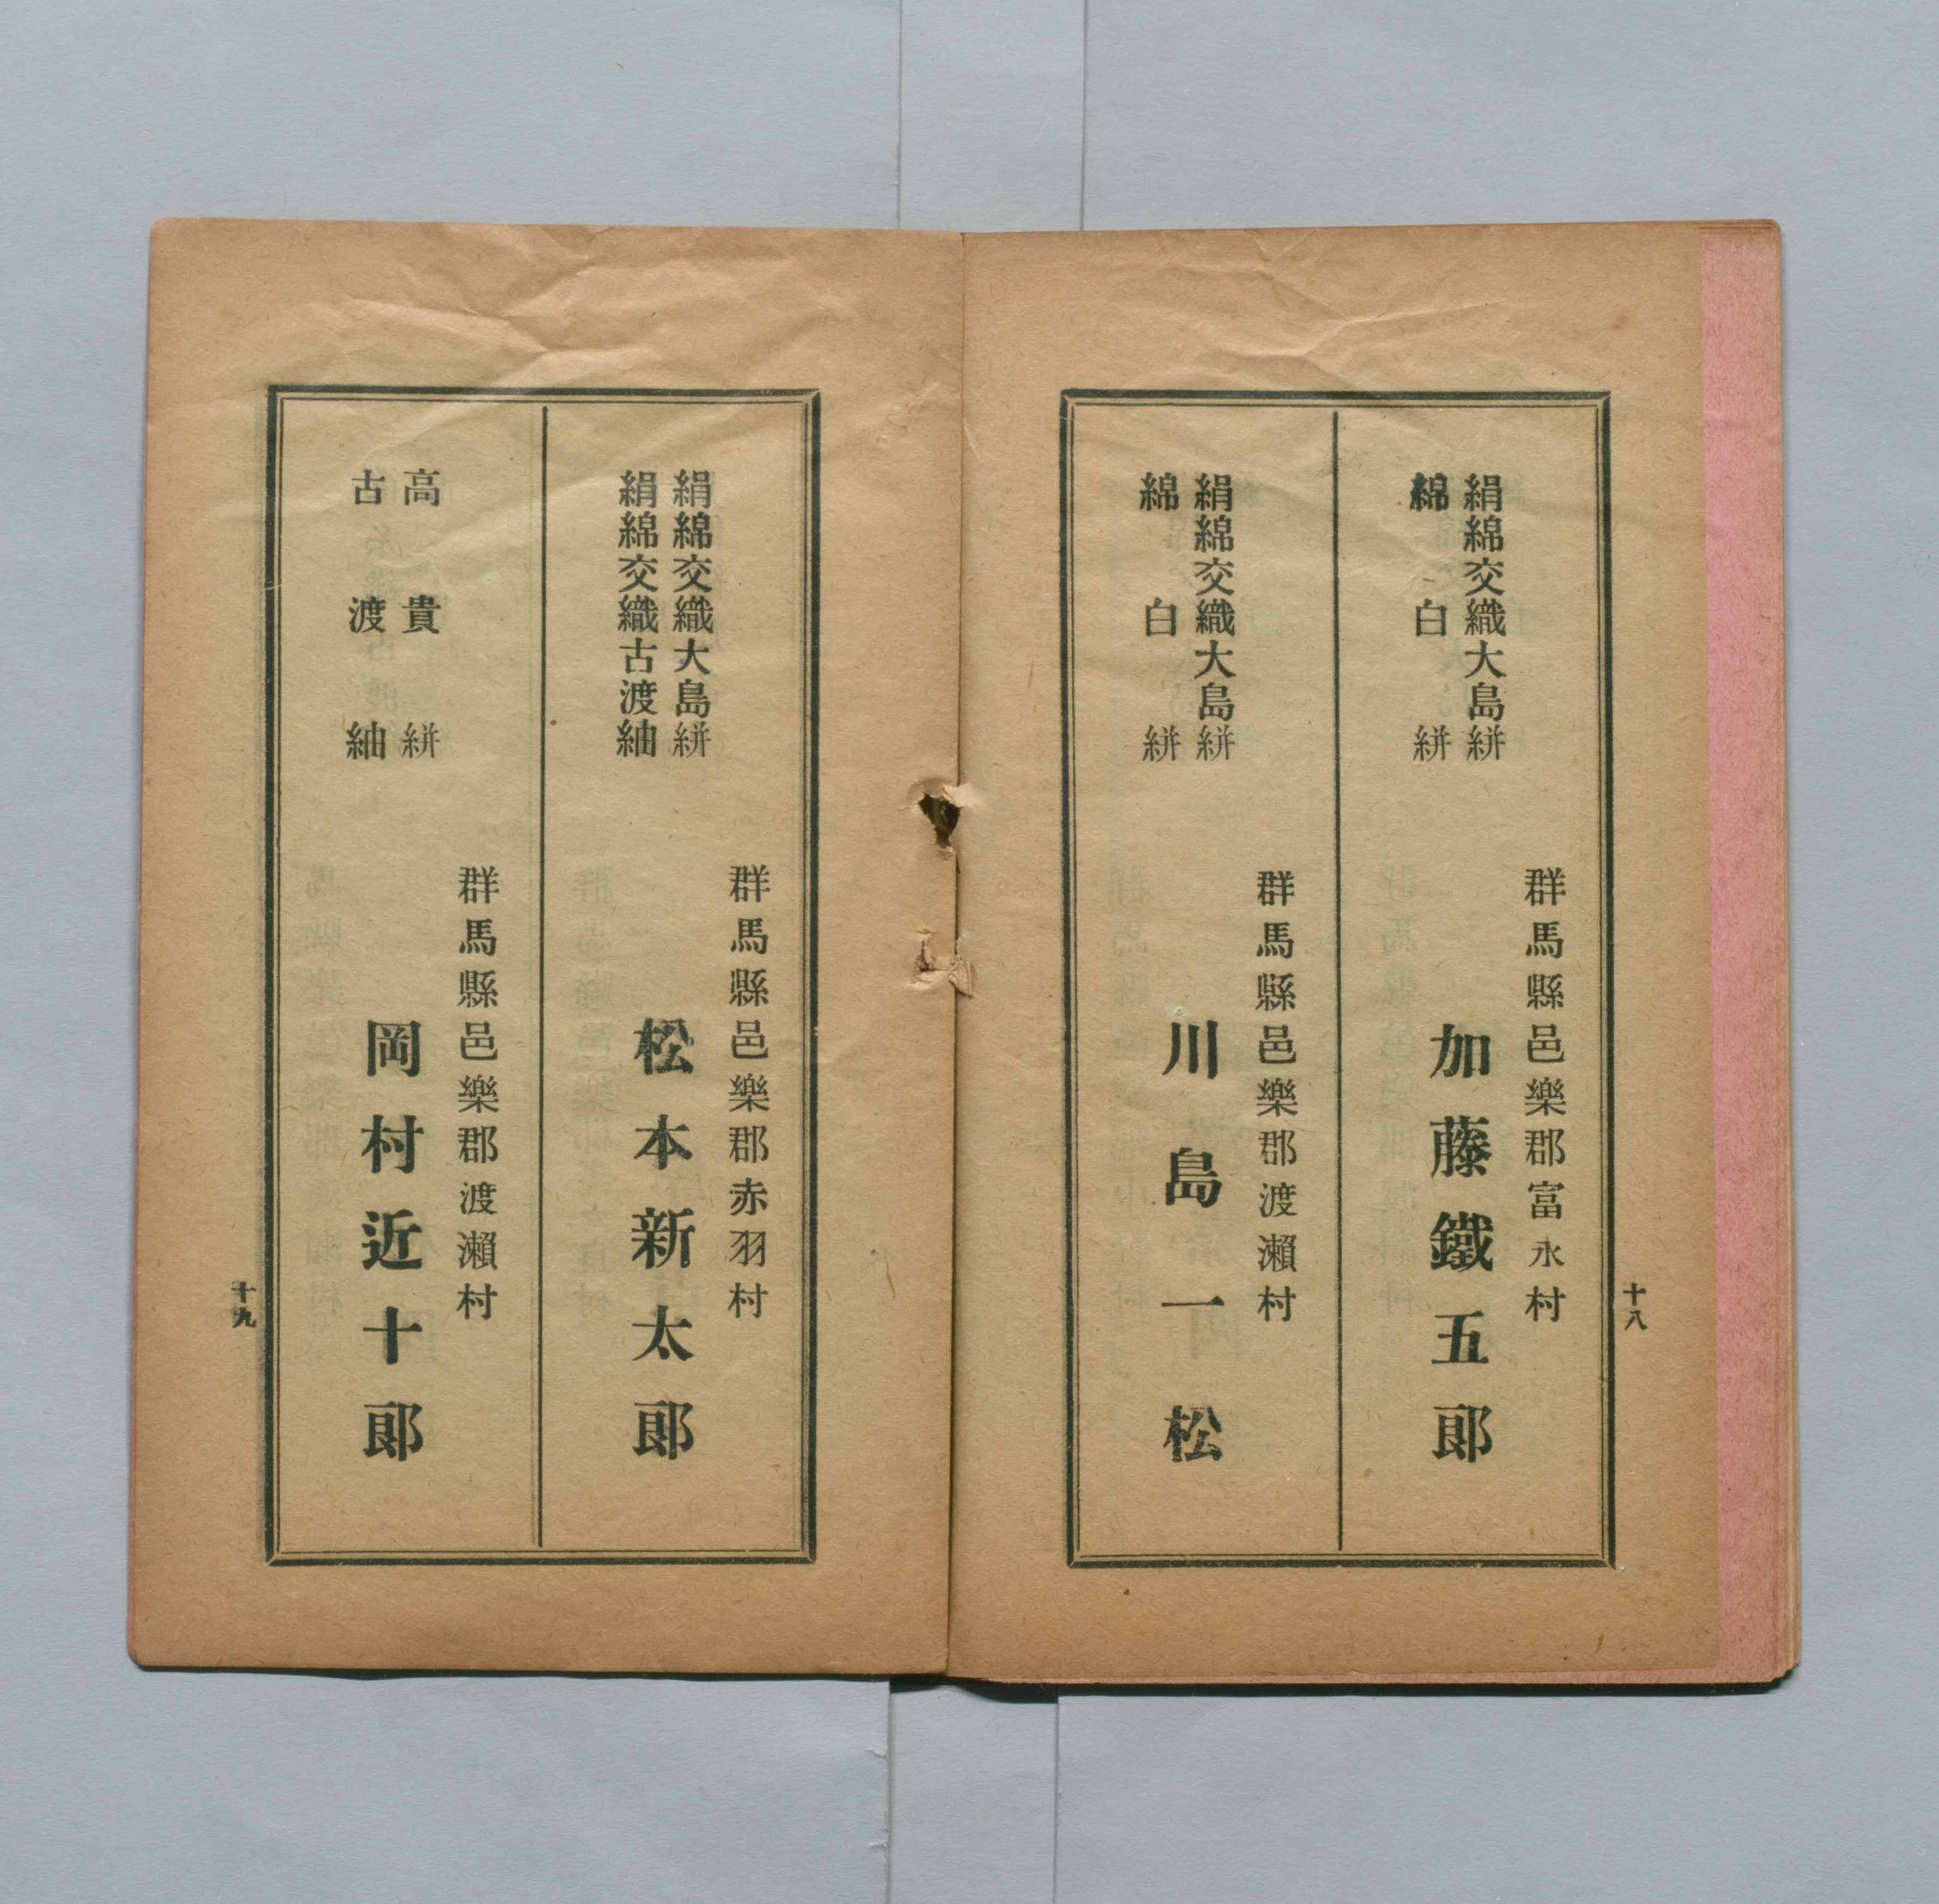 十八
絹綿交織大島絣
綿白絣
群馬縣邑樂郡富永村
加藤鐵五郞
絹綿交織大島絣
綿白絣
群馬縣邑樂郡渡瀨村
川島一松
絹綿交織大島絣
絹綿交織古渡紬
群馬縣邑樂郡赤羽村
松本新太郞
高貴絣
古渡紬
群馬縣邑樂郡渡瀨村
岡村近十郞
十九